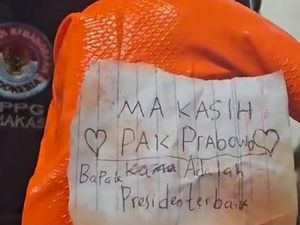 PPG
MAKAS
MA KASIH
PAK Prabowo
Bapak Adalah
Presiden terbaik